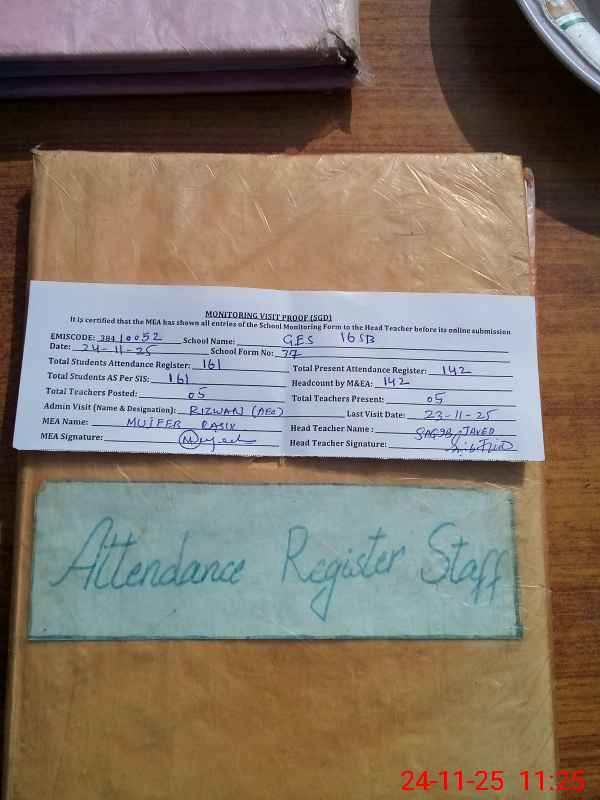 MONITORING VISIT PROOF (SGD)
It is certified that the MEA has shown all entries of the School Monitoring Form to the Head Teacher before its online submission
EMISCODE: 38410052 School Name: GES 16SB
Date: 24-11-25 School Form No: 37
Total Students Attendance Register: 161 Total Present Attendance Register: 142
Total Students AS Per SIS: 161 Headcount by M&EA: 142
Total Teachers Posted: 05 Total Teachers Present: 05
Admin Visit (Name & Designation): RIZWAN (AEO) Last Visit Date: 23-11-25
MEA Name: Head Teacher Name: JAVED
MEA Signature: Head Teacher Signature:
Attendance Register Staff
24-11-25 11:25